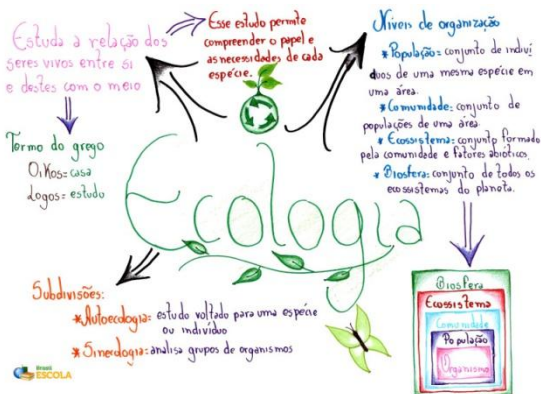 Estuda a relação dos
seres vivos entre si
e destes com o meio
Termo do grego
Oikos= casa
Logos= estudo
Esse estudo permite
compreender o papel e
as necessidades de cada
espécie.
Níveis de organização
* População= conjunto de indiví
duos de uma mesma espécie em
uma área.
* Comunidade= conjunto de
populações de uma área.
* Ecossistema= conjunto formado
pela comunidade e fatores abióticos.
* Biosfera= conjunto de todos os
ecossistemas do planeta.
Ecologia
Subdivisões:
* Autoecologia= estudo voltado para uma espécie
ou indivíduo
* Sinecologia= analisa grupos de organismos
Biosfera
Ecossistema
Comunidade
População
Organismo
Brasil
ESCOLA